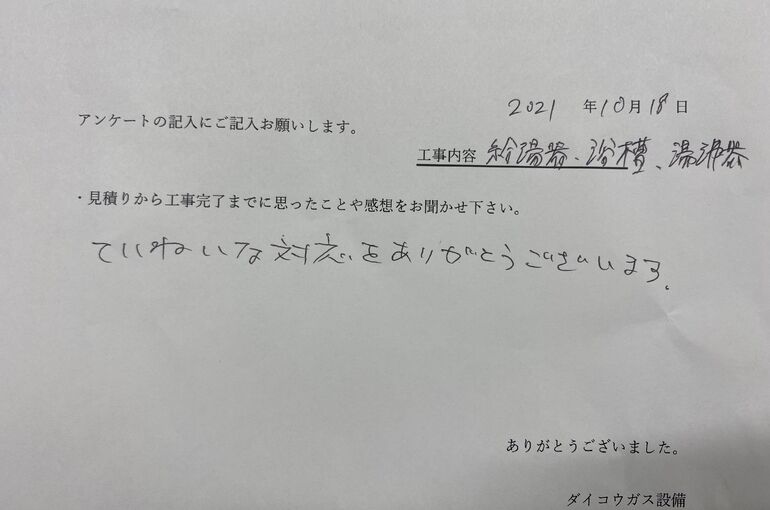 2021 年10月18日
アンケートの記入にご記入お願いします。
工事内容 給湯器、浴槽、湯沸器
・見積りから工事完了までに思ったことや感想をお聞かせ下さい。
ていねいな対応をありがとうございます。
ありがとうございました。
ダイコウガス設備